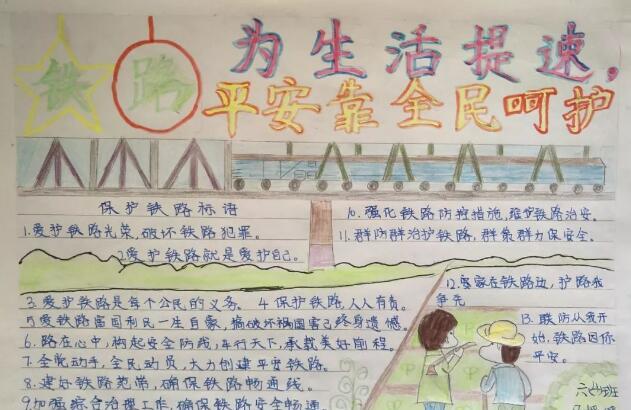 铁路
为生活提速，
平安靠全民呵护
保护铁路标语
1.爱护铁路光荣，破坏铁路犯罪。
2爱护铁路就是爱护自己。
3.爱护铁路是每个公民的义务。 4 保护铁路人人有责。
5爱铁路富国利民一生自豪，搞破坏祸国害己终身遗憾。
6.路在心中，构起安全防线，车行天下，承载美好前程。
7.全民动手，全民动员，大力创建平安铁路。
8.建好铁路范带，确保铁路畅通线。
9加强综合治理工作，确保铁路安全畅通
10.强化铁路防控措施，维护铁路治安。
11.群防群治护铁路，群策群力保安全。
12.家家在铁路边，护路我
争先
13.联防从我开
始，铁路因你
平安。
班